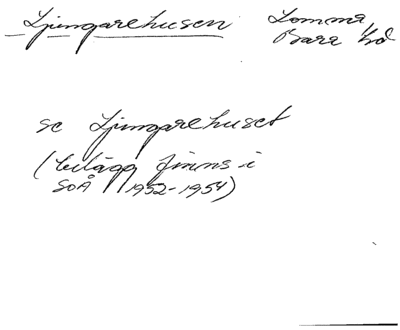 Ljungarehusen Lomma,
Bara hd
se Ljungarehuset
(belägg finns i
SOÅ 1952-1954)